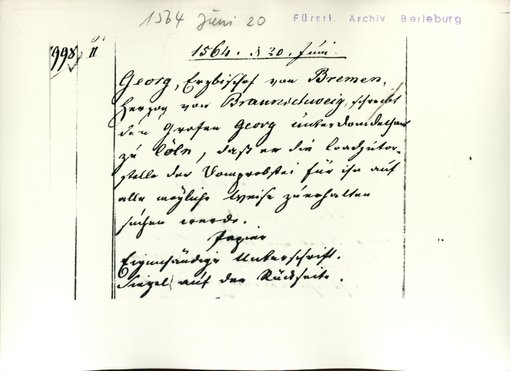 1564 Juni 20
Fürstl. Archiv Berleburg
998
II
1564. d 20. Juni.
Georg, Erzbischof von Bremen,
Herzog von Braunschweig, schreibt
dem Grafen Georg unterdomdechant
zu Cöln, daß er die Coadjutor-
stelle der Domprobstei für ihn auf
alle mögliche Weise zu erhalten
suchen werde.
Papier
Eigenhändige Unterschrift.
Siegel auf der Rückseite.